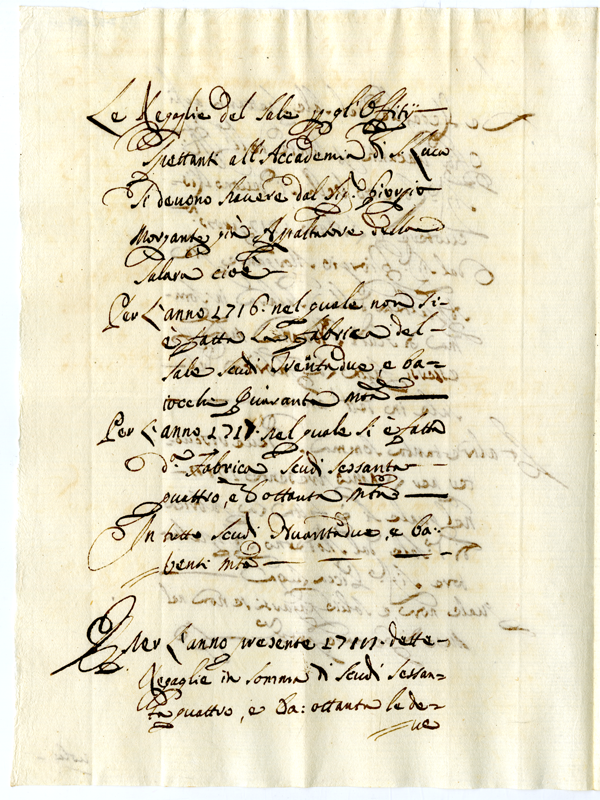 Le Regaglie del Sale p. gl'Offitij
Spettanti all'Accademia di S. Luca
Si devono havere dal Sig.r Giorgio
Morgante già Appaltatore della
Salara cioè
Per l'anno 1716. nel quale non si
è fatta la fabrica del
Sale scudi Trentadue, e ba=
iocchi quaranta mta
Per l'anno 1717. nel quale si è fatta
d.a fabrica scudi sessanta
quattro, e b. ottanta mta
In tutto scudi Novantadue, e ba:
venti mta
Per l'anno presente dette
Regaglie in somma di scudi sessan=
ta quattro, e ba: ottanta le de=
ve